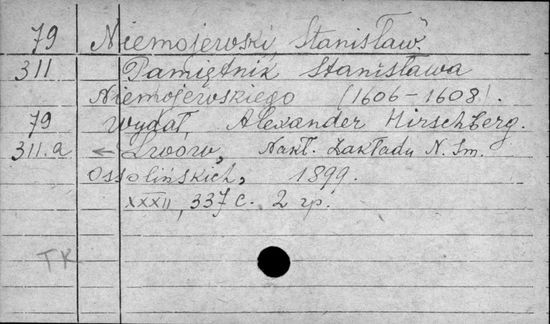 79 Niemojewski, Stanisław.
311 Pamiętnik Stanisława
Niemojewskiego (1606-1608).
79 Wydał, Alexander Hirschberg.
311.a ← Lwów, Nakł. Zakładu N. Im.
Ossolińskich, 1899.
XXXII, 337 c. 2 гр.
TK